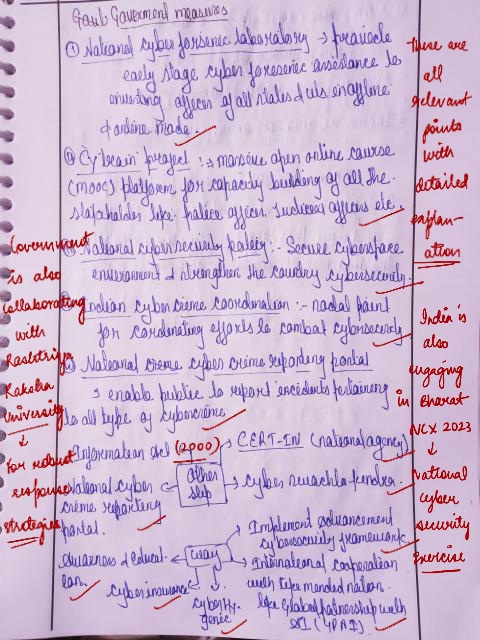 Government measures
① National cyber forsenic laboratory → provide
early stage cyber forensic assistance to
officers of all states & uts in offline
& online mode.
Cytrain project :→ massive open online course
(MOOC) platform for capacity building of all the
stakeholder like police officer, Judicial officers etc.
National cybersecurity policy :- Secure cyberspace
environment & strengthen the country cybersecurity.
Indian cyber crime coordination :- nodal point
for coordinating efforts to combat cybersecurity
National crime cyber crime reporting portal
→ enable public to report incidents pertaining
to all type of cybercrime
Information act (2000) → CERT-IN (national agency)
National cyber
crime reporting
portal.
other
step
cyber swachta kendra
way
Implement advancement
cybersecurity framework
international cooperation
with like minded nation
like Global partnership with
AI (GPAI)
Awarness & educat
ion.
cyber insurance
cyber hy-
genic
these are
all
relevant
points
with
detailed
explan-
ation
India is
also
engaging
in Bharat
NCX 2023
↓
National
cyber
security
Exercise
Government
is also
collaborating
with
Rashtriya
Raksha
University
↓
For robust
response
strategies